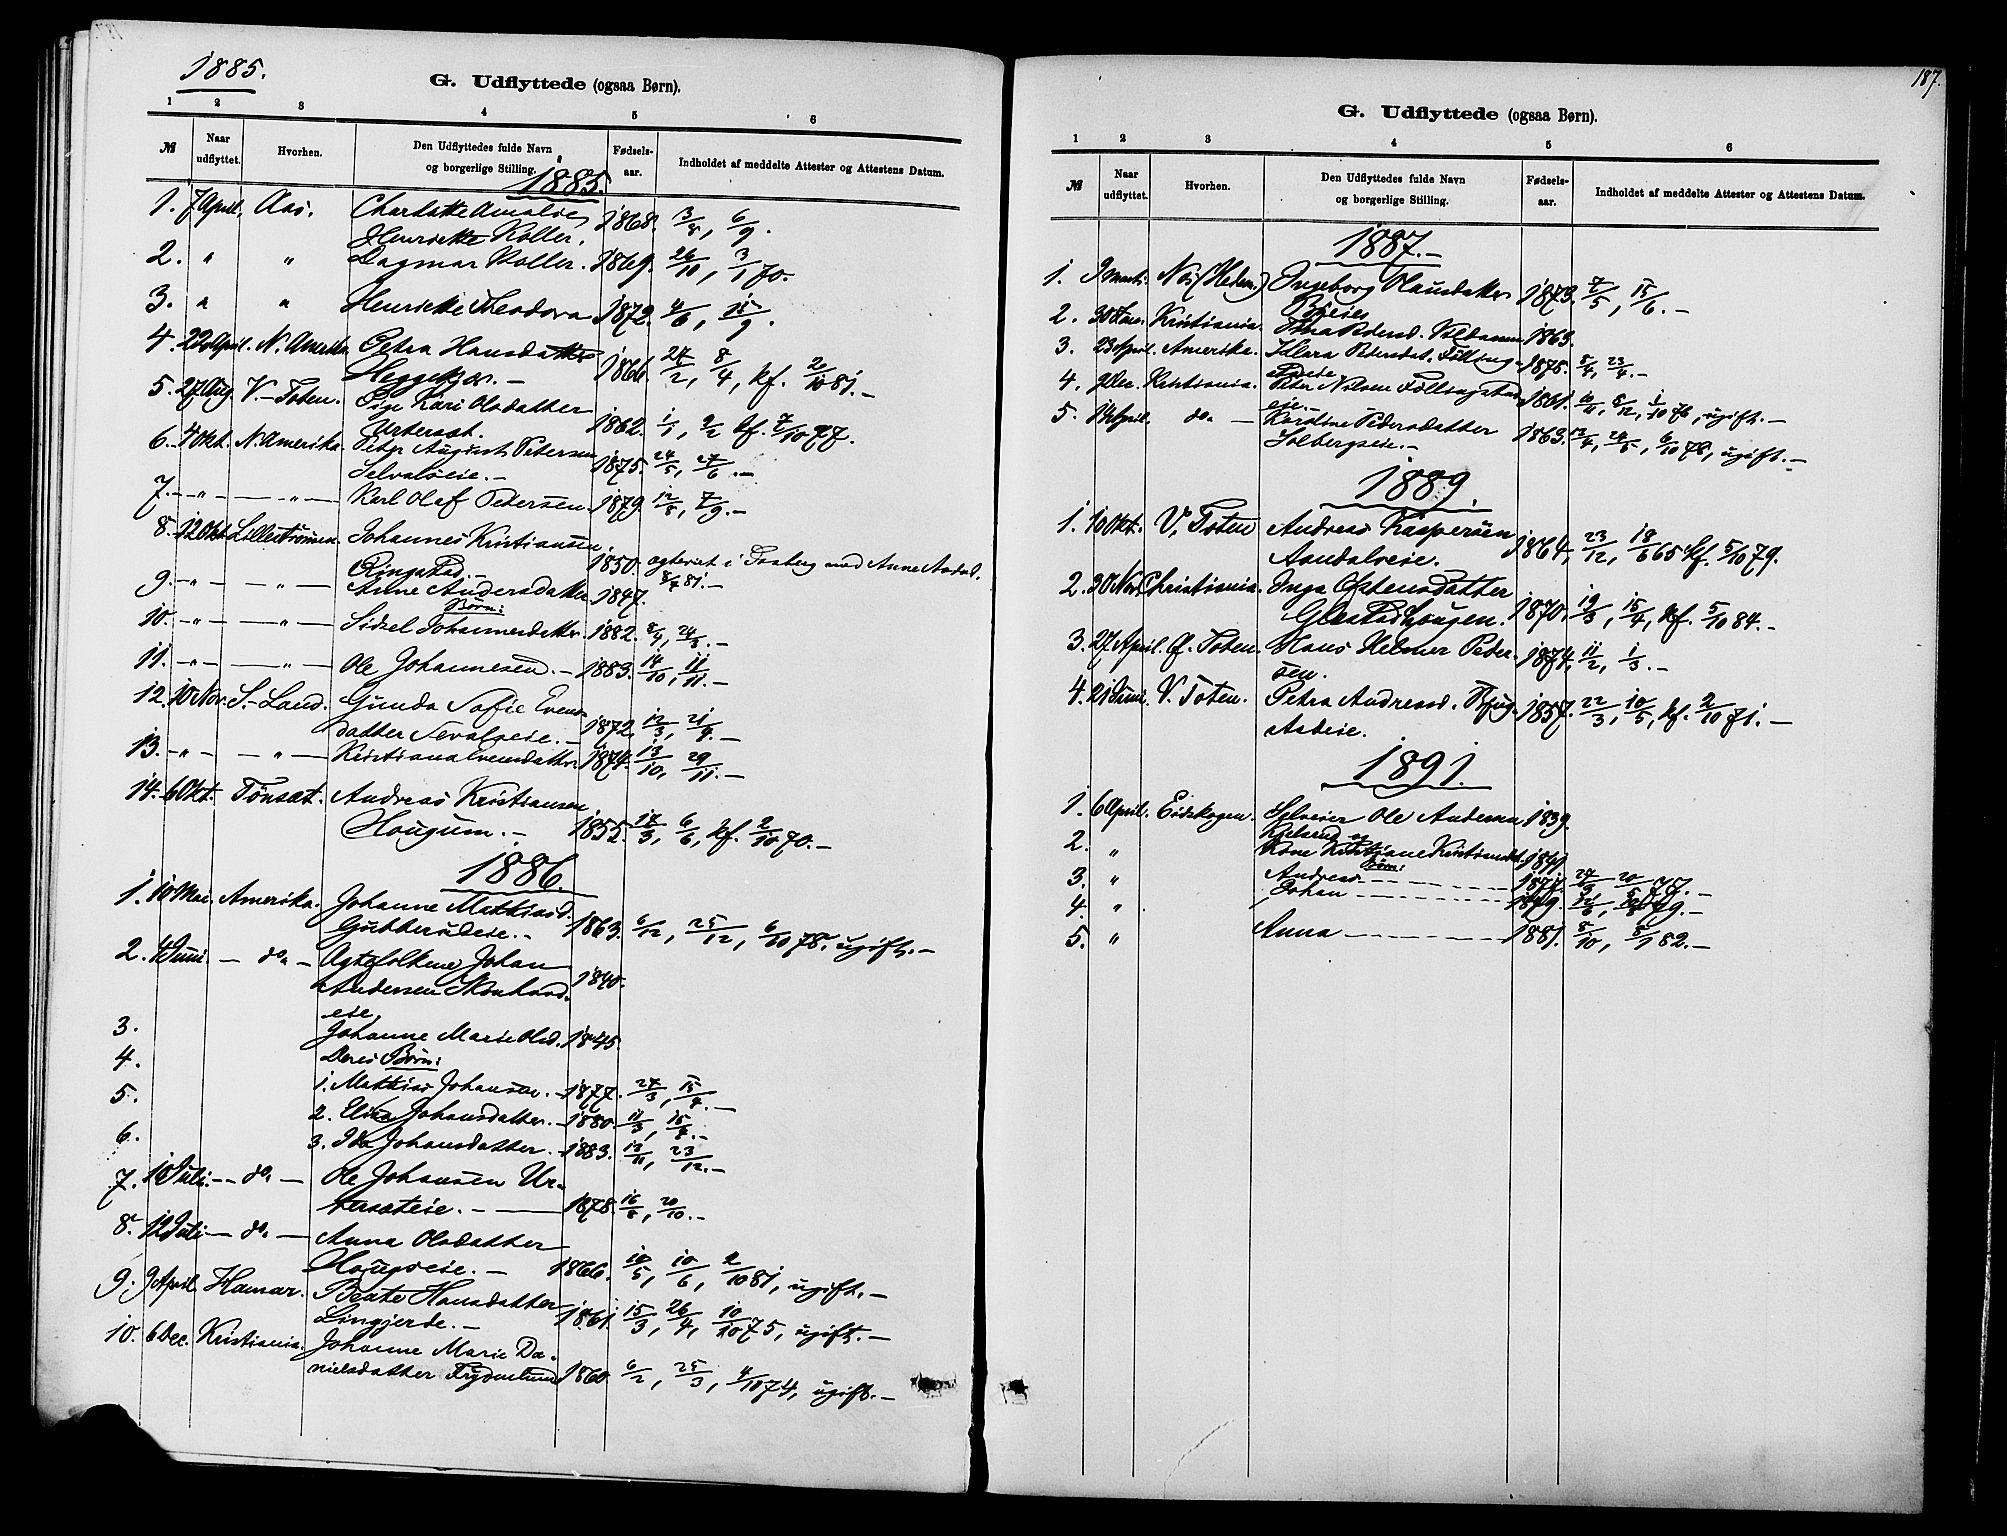 1885.
G. Udflyttede (ogsaa Børn).
1 2 3 4 5 6
№ Naar udflyttet. Hvorhen. Den Udflyttedes fulde Navn og borgerlige Stilling. Fødsels-aar. Indholdet af meddelte Attester og Attestens Datum.
1885.
1. 7 April. Aas. Charlotte Amalie
Henriette Koller. 1868. 3/8, 6/9.
2. " " Dagmar Koller. 1869. 26/10, 3/1 70.
3. " " Henriette Theodora 1872. 4/6, 15/9.
4. 22 April. N. Amerika Petra Hansdatter
Heggekjær. – 1866. 27/2, 8/4, kf. 2/10 81. –
5. 27 Aug. V.-Toten. Kari Olsdatter
1862. 1/1, 9/2 kf. 7/10 77.
6. 4 Okt. N. Amerika. Peter August Petersen
1875. 24/5, 27/6. –
7. – " – – " – Karl Olaf Petersen 1879. 12/8, 7/9. –
8. 12 Okt. Lillestrømmen. Johannes Kristiansen
Ringstad. – 1850. egteviet i Faaberg med Anne Andsd.
81. –
9. – " – – " – Anne Andersdatter 1847.
Børn:
10. – " – – " – Sidsel Johannesdatter. 1882. 8/4, 24/8. –
11. – " – – " – Ole Johannesen. – 1883. 14/10, 11/11. –
12. 10 Nov. S.-Land. Gunda Sofie Evens-
datter 1872. 12/3, 21/4. –
13. – " – – " – Kristiana Evensdatter 1874. 13/10, 29/11. –
14. 6 Okt. Tönsæt. Andreas Kristiansen
Hougum. – 1855. 17/3, 6/6, kf. 2/10 70. –
1886.
1. 10 Mai. Amerika. Johanne Mathiasd.
Gubberudeie. – 1863. 6/12, 25/12, 6/10 78. ugift. –
2. 4 Juni. – do – Ægtefolkene Johan
Andersen
eie 1840.
3. Johanne Marie Olsd. 1845.
4. Deres Børn:
1. Mathias Johansen. – 1877. 27/3, 15/4. –
5. 2. Elise Johansdatter. – 1880. 11/3, 15/4. –
6. 3. Ida Johansdatter. – 1883. 13/11, 23/12. –
7. 10 Juli. – do – Ole Johansen Ur-
tersæteie. – – 1878. 16/6, 20/10. –
8. 12 Juli – do – Anna Olsdatter
Hougseie. – 1866. 10/5, 10/6, 2/10 81, ugift. –
9. 9 April. Hamar. Beate Hansdatter
Lingjerde. – 1861. 15/3, 26/4, 10/10 75, ugift. –
10. 6 Dec. Kristiania. Johanne Marie Da-
nielsdatter Frydenlund 1860. 6/2, 25/3, 4/10 74, ugift. –
187.
G. Udflyttede (ogsaa Børn).
1 2 3 4 5 6
№ Naar udflyttet. Hvorhen. Den Udflyttedes fulde Navn og borgerlige Stilling. Fødsels-aar. Indholdet af meddelte Attester og Attestens Datum.
1887. –
1. 9 marts. Næs (Hedem.) Ingeborg Olausdatter 1873. 7/5, 15/6. –
2. 30 Kristiania. 1863.
3. 23 April. Amerika. Klara Pedersdat. 1878. 8/4, 23/4. –
4. 9 Dec. Kristiania. Peter Nilsen Føllingstad
eie. 1861. 10/11, 8/12, 1/10 76, ugift. –
5. 14 April. do – Karoline Pedersdatter
Solbergseie. – 1863. 12/4, 24/5, 6/10 78, ugift. –
1889.
1. 10 Okt. V. Toten Andreas Kaspersen
Aandalseie. 1864, 23/12, 18/6 65 kf. 5/10 79.
2. 30 Nov. Christiania. Inga Østensdatter
Glæstadhougen. 1870. 19/3, 15/4, kf. 5/10 84. –
3. 27 April Ø. Toten. Hans Helmer Peder-
sen. 1874, 11/2, 1/3. –
4. 21 Juni. V. Toten. Petra Andreasd.
1857. 22/3, 10/5, kf. 2/10 71. –
1891.
1. 6 April. Eidskogen. Selveier Ole Andersen 1839.
og
2. " Kone Kristiane Kristiansdt. 1841
Børn:
3. " Andreas – – – – 1877. 27/3, 20/5 77. –
4. " Johan – – – – 1879.
5. " Anna – – – – 1881. 8/10, 8/1 82. –